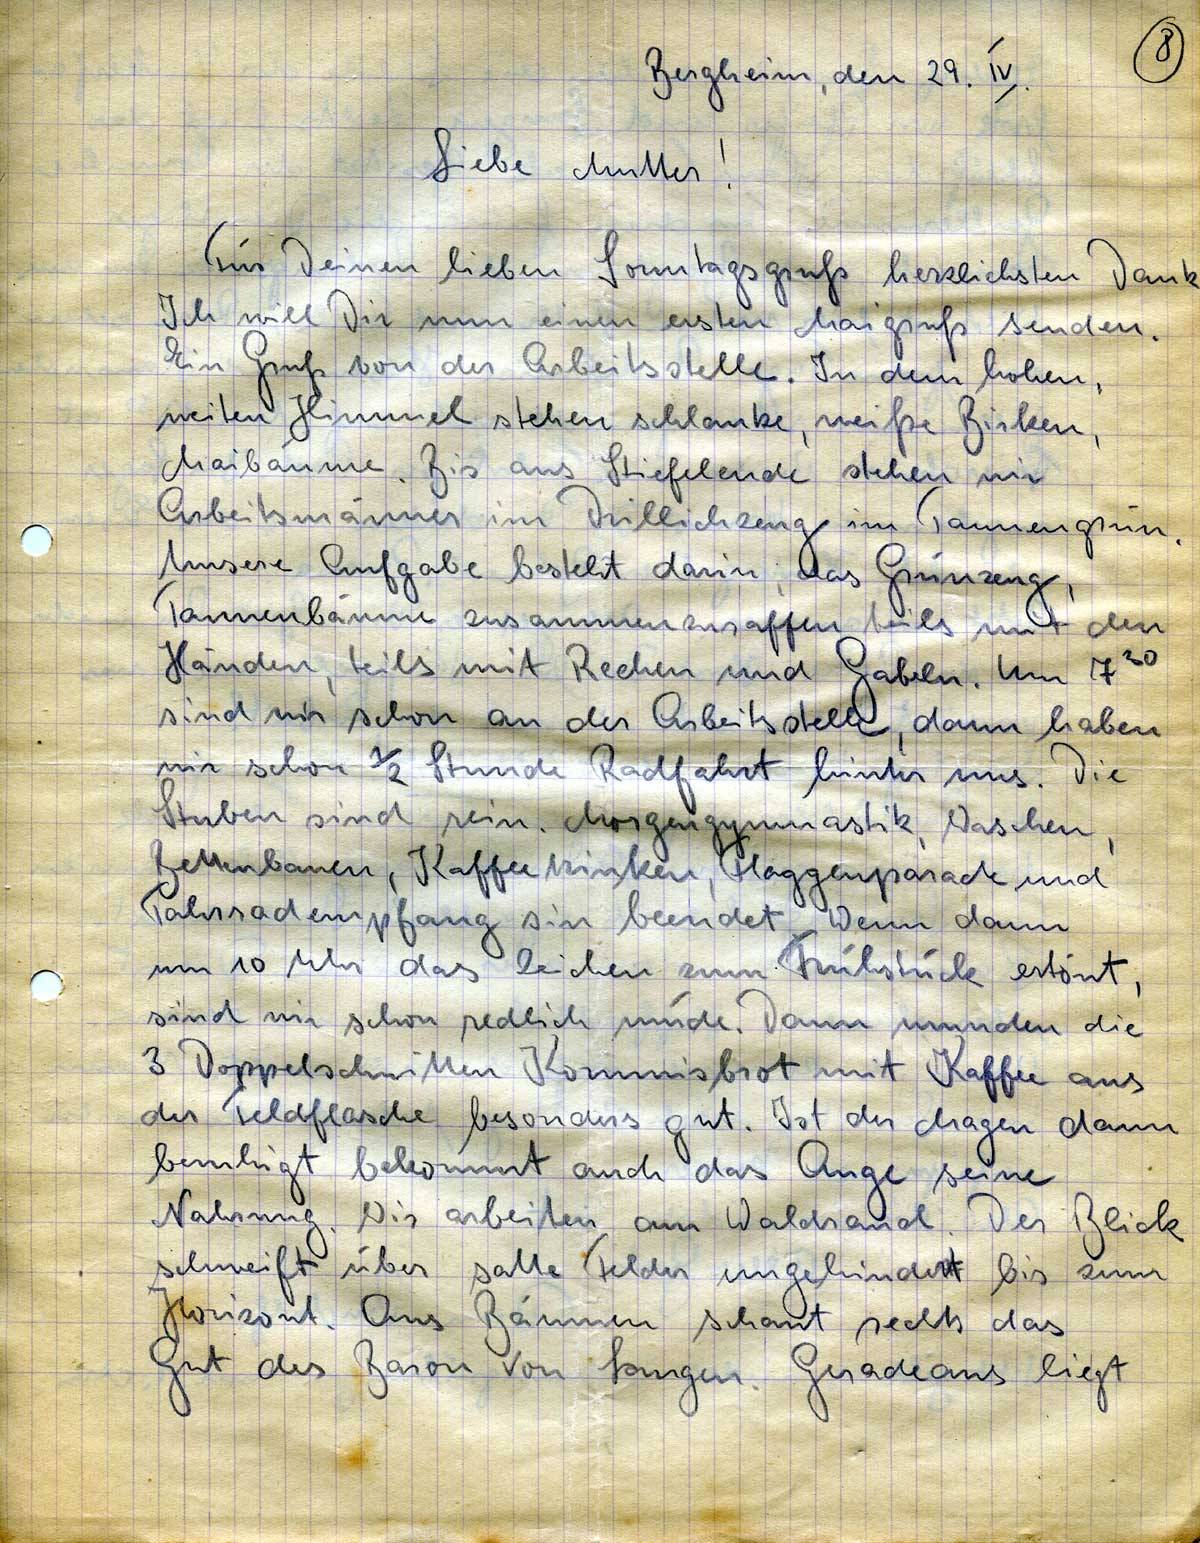 8
Bergheim, den 29. IV.
Liebe Mutter!
Für Deinen lieben Sonntagsgruß herzlichsten Dank
Ich will Dir nun einen ersten Maigruß senden.
Ein Gruß von der Arbeitsstelle. In dem hohen,
weiten Himmel stehen schlanke, weiße Birken,
Maibäume. Bis ans Stiefelende stehen wir
Arbeitsmänner im Drillichzeug im Tannengrün.
Unsere Aufgabe besteht darin, das Grünzeug,
Tannenbäume zusammenzuraffen teils mit den
Händen, teils mit Rechen und Gabeln. Um 7³⁰
sind wir schon an der Arbeitsstelle, dann haben
wir schon 1/2 Stunde Radfahrt hinter uns. Die
Stuben sind rein. Morgengymnastik, Waschen,
Bettenbauen, Kaffeetrinken, Flaggenparade und
Fahrradempfang sin beendet. Wenn dann
um 10 Uhr das Zeichen zum Frühstück ertönt,
sind wir schon redlich müde. Dann munden die
3 Doppelschnitten Kommisbrot mit Kaffee aus
der Feldflasche besonders gut. Ist der Magen dann
beruhigt bekommt auch das Auge seine
Nahrung. Wir arbeiten am Waldrand. Der Blick
schweift über satte Felder ungehindert bis zum
Horizont. Aus Bäumen schaut rechts das
Gut des Baron von Songen. Geradeaus liegt